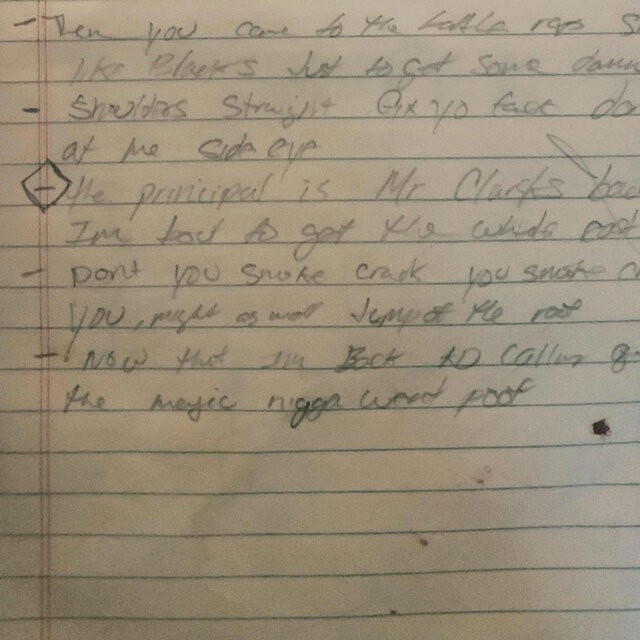 - Then you come to the battle raps
like Blanks Just to get some
- Shoulders Straight fix yo face
at me side eye
- the principal is Mr Clarks
Im bout to get the whole
- Dont you smoke crack you smoke
you, might as well Jump of the roof
- Now that im Back to Calling
the magic nigga went poof